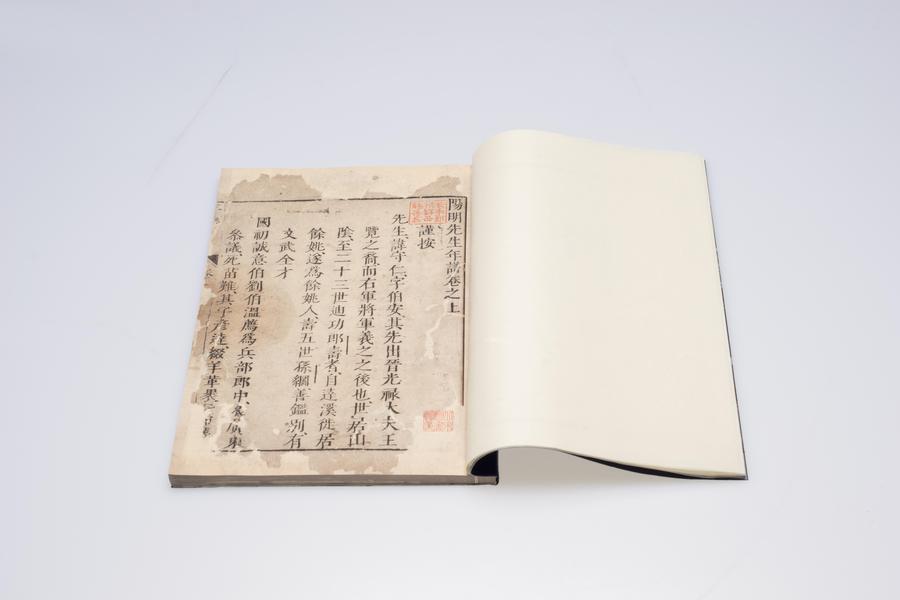 陽明先生年譜卷之上
謹按
先生諱守仁字伯安其先出晉光祿大夫王
覽之裔而右軍將軍羲之之後也世居山
陰至二十三世迪功郎壽者自達溪徙居
餘姚遂爲餘姚人壽五世孫綱善鑑別有
文武全才
國初誠意伯劉伯溫薦爲兵部郎中廣東
參議死苗難其子彥達綴羊革裹